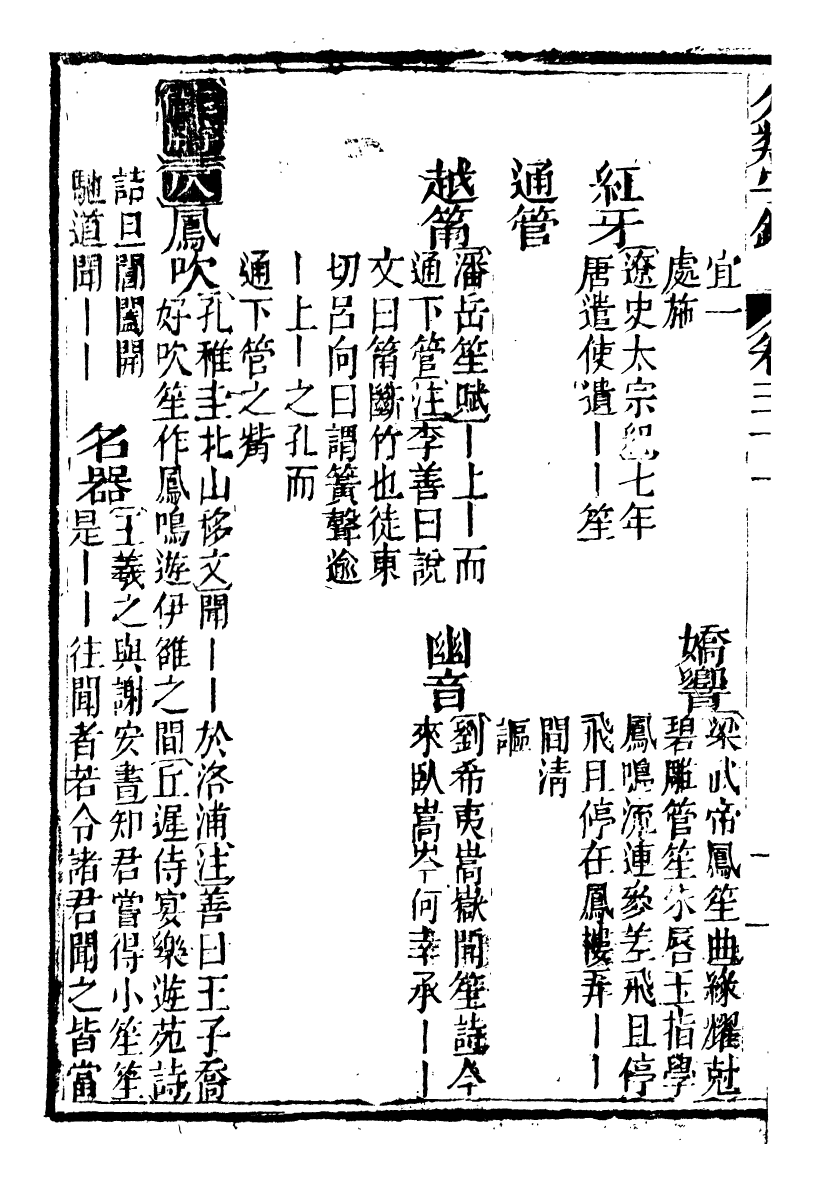 分類字錦 卷
宜一
處施
嬌響 梁武帝鳳笙曲綠耀尅
碧雕管笙朱唇玉指學
鳳鳴流連參差飛且停
飛且停在鳳樓弄丨丨
間清
謳
紅牙 遼史太宗紀七年
唐遣使遺丨丨笙
通管
越筩 潘岳笙賦丨上丨而
通下管注李善曰說
文曰筩斷竹也徒東
切呂向曰謂簧聲逾
丨上丨之孔而
通下管之觜
幽音 劉希夷嵩嶽聞笙詩今
來臥嵩岑何幸承丨丨
鳳吹 孔稚圭北山移文聞丨丨於洛浦注善曰王子喬
好吹笙作鳳鳴遊伊雒之間丘遲侍宴樂遊苑詩
詰旦閶闔開
馳道聞丨丨
名器 王羲之與謝安書知君嘗得小笙笙
是丨丨往聞者若令諸君聞之皆當